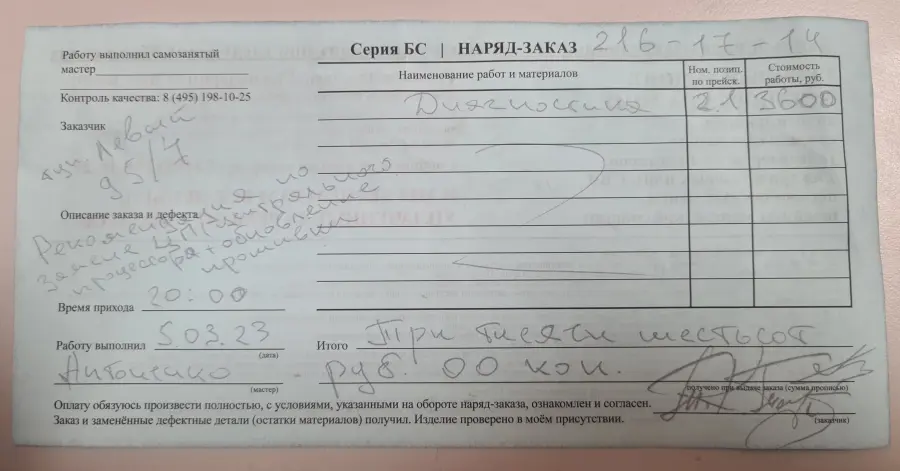 Серия БС | НАРЯД-ЗАКАЗ 216-17-14
Работу выполнил самозанятый
мастер
Контроль качества: 8 (495) 198-10-25
Заказчик
Левый
95/7
Описание заказа и дефекта
Рекомендация по
замене ЦП(центрального
процессора + обновление
прошивки
Время прихода 20:00
Наименование работ и материалов
Ном. позиц. по прейск.
Стоимость работы, руб.
Диагностика 2.1 3600
Работу выполнил 5.03.23
(дата)
Антоненко
(мастер)
Итого Три тисячи шестьсот
руб. 00 коп.
получено при выдаче заказа (сумма прописью)
Оплату обязуюсь произвести полностью, с условиями, указанными на обороте наряд-заказа, ознакомлен и согласен.
Заказ и заменённые дефектные детали (остатки материалов) получил. Изделие проверено в моём присутствии.
(заказчик)